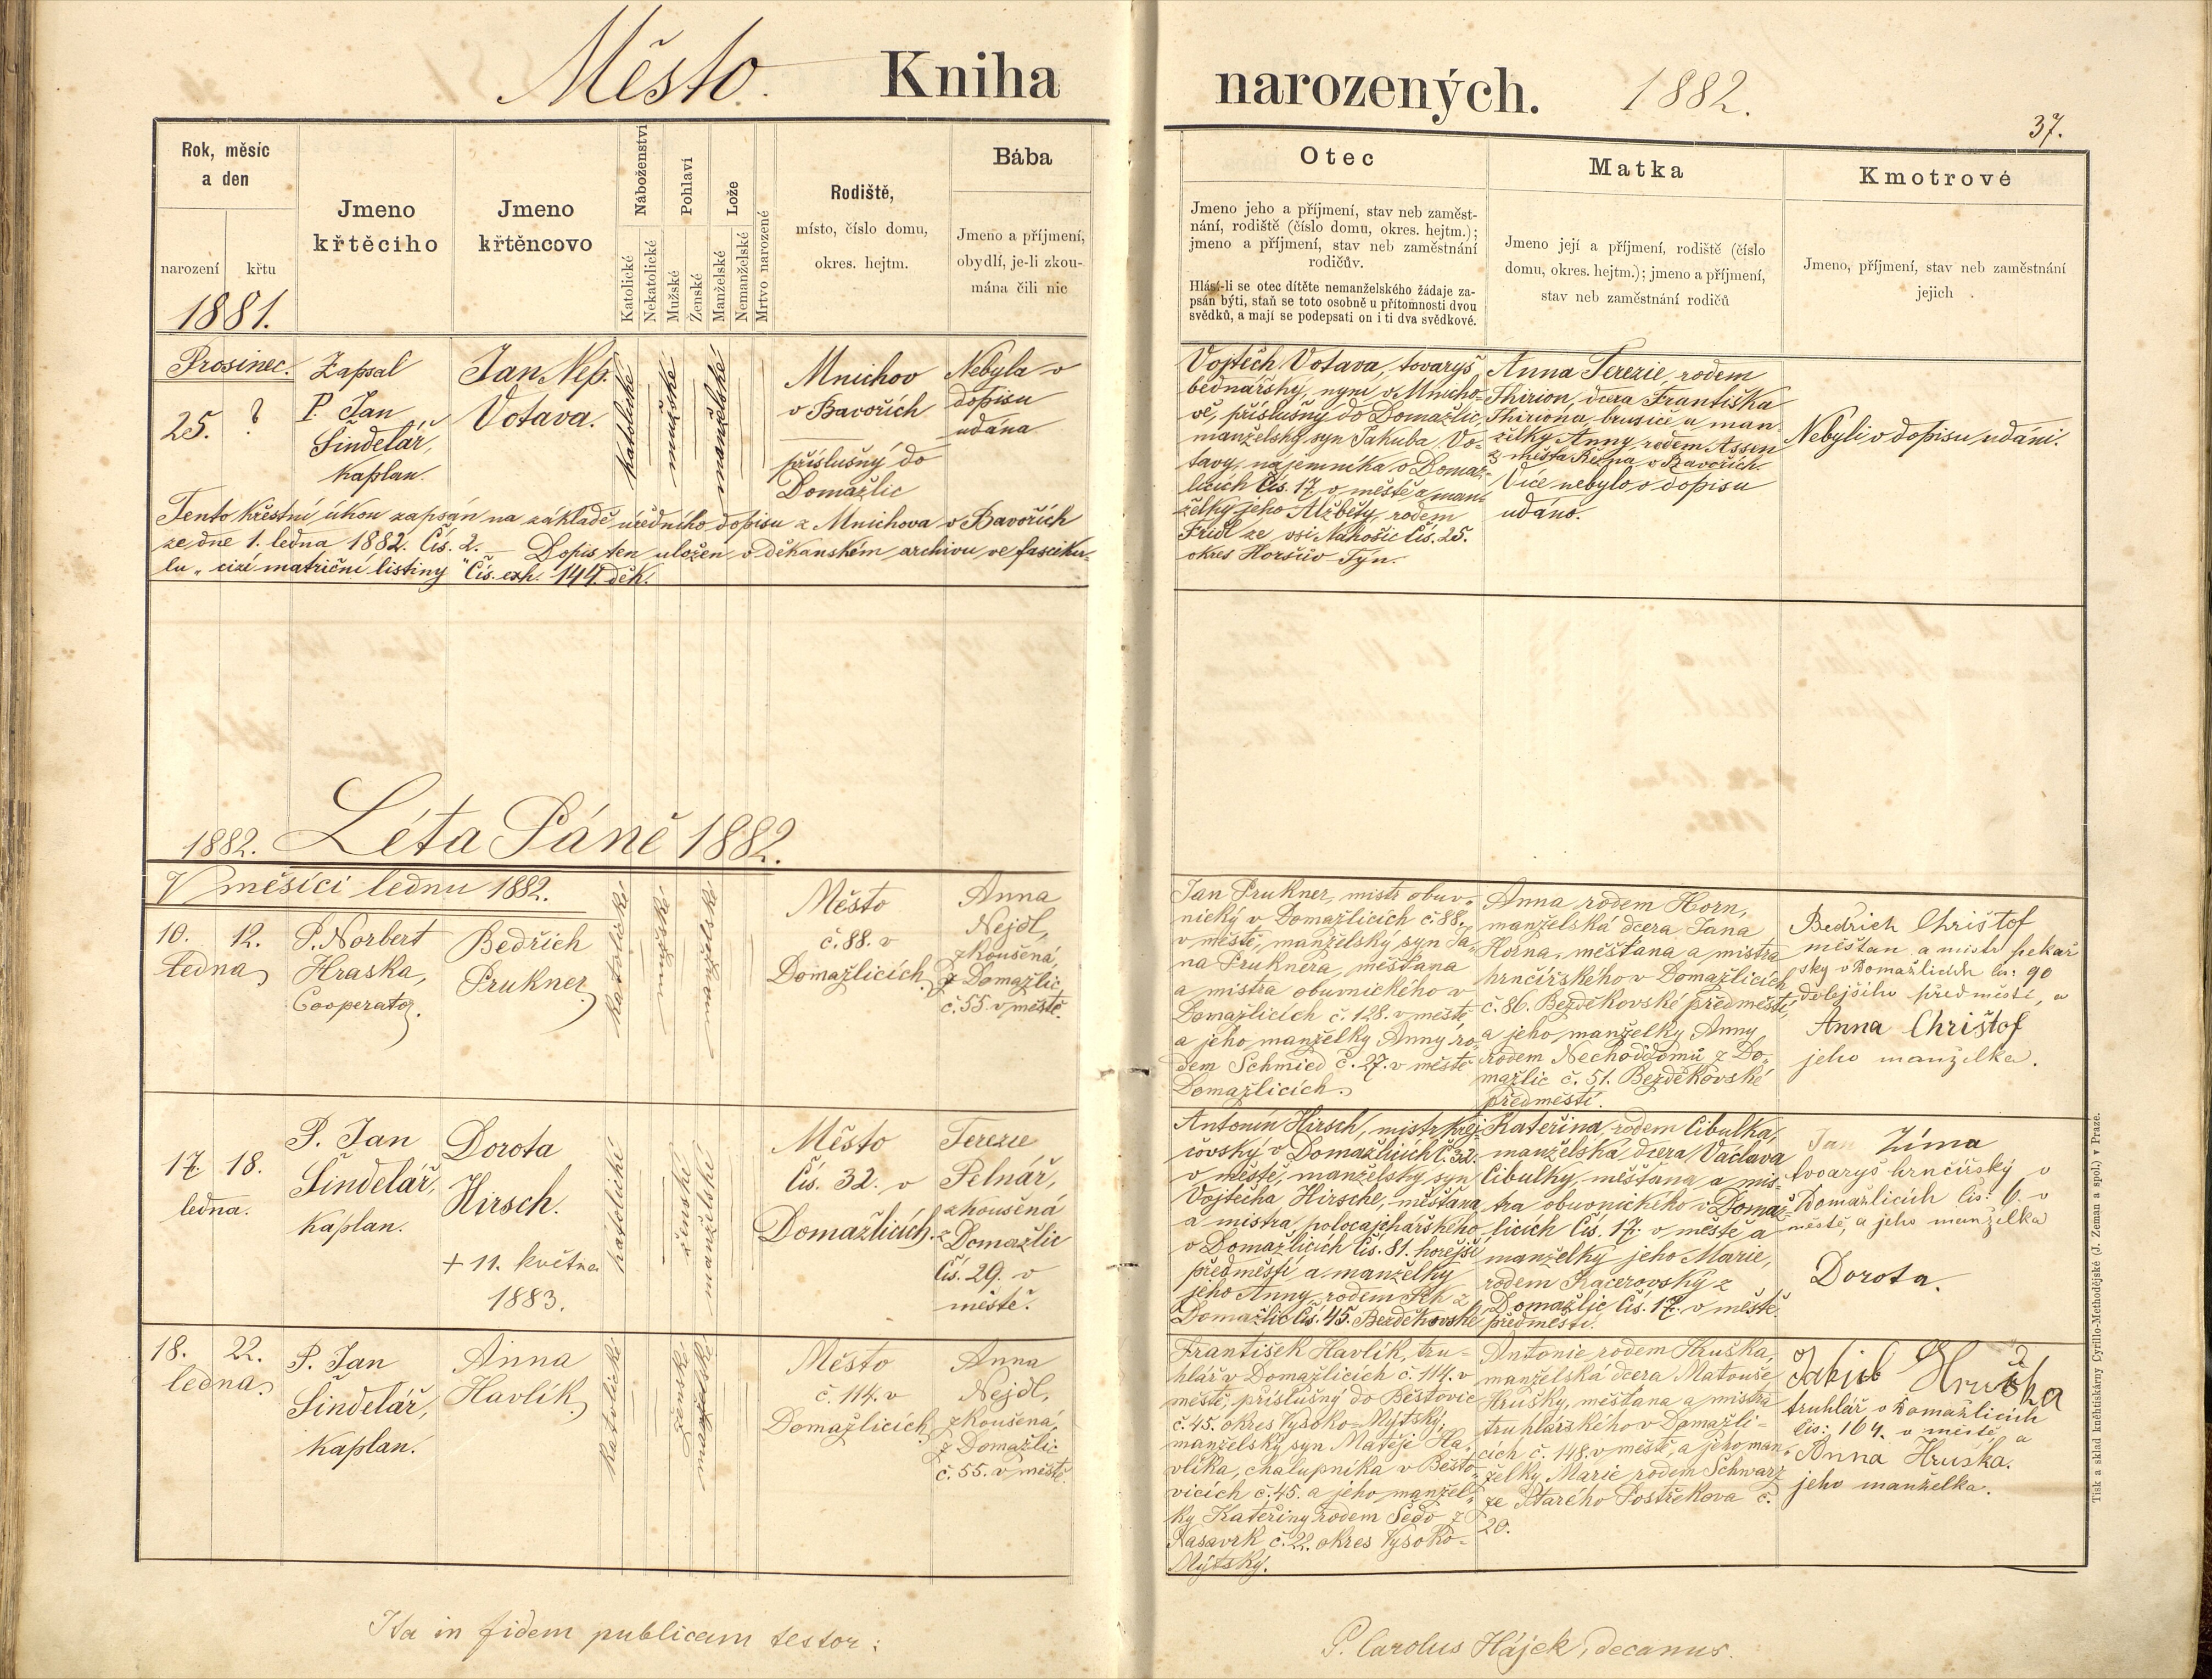 Město. Kniha narozených. 1882.
37.
Rok, měsíc
a den
narození
křtu
1881.
Jmeno
křtěcího
Jmeno
křtěncovo
Náboženství
Katolické
Nekatolické
Pohlaví
Mužské
Ženské
Lože
Manželské
Nemanželské
Mrtvo narozené
Rodiště,
místo, číslo domu,
okres. hejtm.
Bába
Jmeno a příjmení,
obydlí, je-li zkou-
mána čili nic
Otec
Jmeno jeho a příjmení, stav neb zaměst-
nání, rodiště (číslo domu, okres. hejtm.);
jmeno a příjmení, stav neb zaměstnání
rodičův.
Hlásí-li se otec dítěte nemanželského žádaje za-
psán býti, staň se toto osobně u přítomnosti dvou
svědků, a mají se podepsati on i ti dva svědkové.
Matka
Jmeno její a příjmení, rodiště (číslo
domu, okres. hejtm.); jmeno a příjmení,
stav neb zaměstnání rodičů
Kmotrové
Jmeno, příjmení, stav neb zaměstnání
jejich
Prosinec.
25. ?
Zapsal
P. Jan
Šindelář,
kaplan.
Jan Nep.
Votava.
katolické
mužské
manželské
Mnichov
v Bavořích
příslušný do
Domažlic
Nebyla v
dopisu
udána
Tento křestní úkon zapsán na základě úředního dopisu z Mnichova v Bavořích
ze dne 1. ledna 1882. Čís. 2. Dopis ten uložen v děkanském archivu ve fasciku-
lu „cizí matriční listiny" Čís. exh. 144 děk.
Vojtěch Votava, tovaryš
bednářský, nyní v Mnicho-
vě, příslušný do Domažlic,
manželský syn Jakuba Vo-
tavy, nájemníka v Domaž-
licích Čís. 17 v městě a man-
želky jeho Alžběty, rodem
Fridl ze vsi Nahošic Čís. 25.
okres Horšův-Týn.
Anna Terezie, rodem
Thirion, dcera Františka
Thiriona, brusiče a man-
želky Anny, rodem Assen
z města Řezna v Bavořích
Více nebylo v dopisu
udáno.
Nebyli v dopisu udáni.
1882. Léta Páně 1882.
V měsíci lednu 1882.
10. 12.
ledna
P. Norbert
Hraska,
Cooperator.
Bedřich
Prukner
katolické
mužské
manželské
Město
č. 88. v
Domažlicích
Anna
Nejdl,
zkoušená,
z Domažlic
č. 55. v městě.
Jan Prukner, mistr obuv-
nický v Domažlicích č. 88.
v městě, manželský syn Ja-
na Pruknera, měšťana
a mistra obuvnického v
Domažlicích č. 128. v městě
a jeho manželky Anny ro-
dem Schmied č. 27. v městě
Domažlicích.
Anna rodem Horn,
manželská dcera Jana
Horna, měšťana a mistra
hrnčířského v Domažlicích
č. 86. Bezděkovské předměstí,
a jeho manželky Anny
rodem Nechoďdomů z Do-
mažlic č. 51. Bezděkovské
předměstí.
Bedrich Chrištof
měšťan a mistr pekař
ský v Domažlicích čís: 90
dolejšího předměstí, a
Anna Chrištof
jeho manželka.
17. 18.
ledna.
P. Jan
Šindelář,
kaplan.
Dorota
Hirsch.
+ 11. května
1883.
katolické
ženské
manželské
Město
Čís. 32. v
Domažlicích.
Terezie
Pelnář,
zkoušená
z Domažlic
Čís. 29. v
městě.
Antonín Hirsch, mistr krej-
čovský v Domažlicích Č. 32.
v městě, manželský syn
Vojtěcha Hirsche, měšťana
a mistra polocajchařského
v Domažlicích Čís. 81. hořejší
předměstí a manželky
jeho Anny, rodem Pek z
Domažlic Čís. 45. Bezděkovské
Kateřina, rodem Cibulka,
manželská dcera Václava
Cibulky, měšťana a mis-
tra obuvnického v Domaž-
licích Čís. 17. v městě a
manželky jeho Marie,
rodem Kacerovský z
Domažlic Čís. 17. v městě.
předměstí.
Jan Zíma
tovaryš hrnčířský v
Domažlicích čís: 6. v
městě, a jeho manželka
Dorota.
18. 22.
ledna
P. Jan
Šindelář,
kaplan.
Anna
Havlík
katolické
ženské
manželské
Město
č. 114. v
Domažlicích
Anna
Nejdl,
zkoušená,
z Domažlic
č. 55. v městě.
František Havlík, tru-
hlář v Domažlicích č. 114. v
městě, příslušný do Běstovic
č. 45. okres Vysoko-Mýtský,
manželský syn Matěje Ha-
vlíka, chalupníka v Běsto-
vicích č. 45. a jeho manžel-
ky Kateřiny rodem Šedo z
Nasavrk č. 22. okres Vysoko-
Mýtský.
Antonie rodem Hruška,
manželská dcera Matouše
Hrušky, měšťana a mistra
truhlářského v Domažli-
cích č. 148. v městě, a jeho man-
želky Marie rodem Schwarz
ze Starého Postřekova č.
20.
Jakub Hruška
truhlář v Domažlicích
čís: 164. v městě, a
Anna Hruška.
jeho manželka.
Ita in fidem publicam testor:
P. Carolus Hájek, decanus.
Tisk a sklad knihtiskárny Cyrillo-Methodějské (J. Zeman a spol.) v Praze.